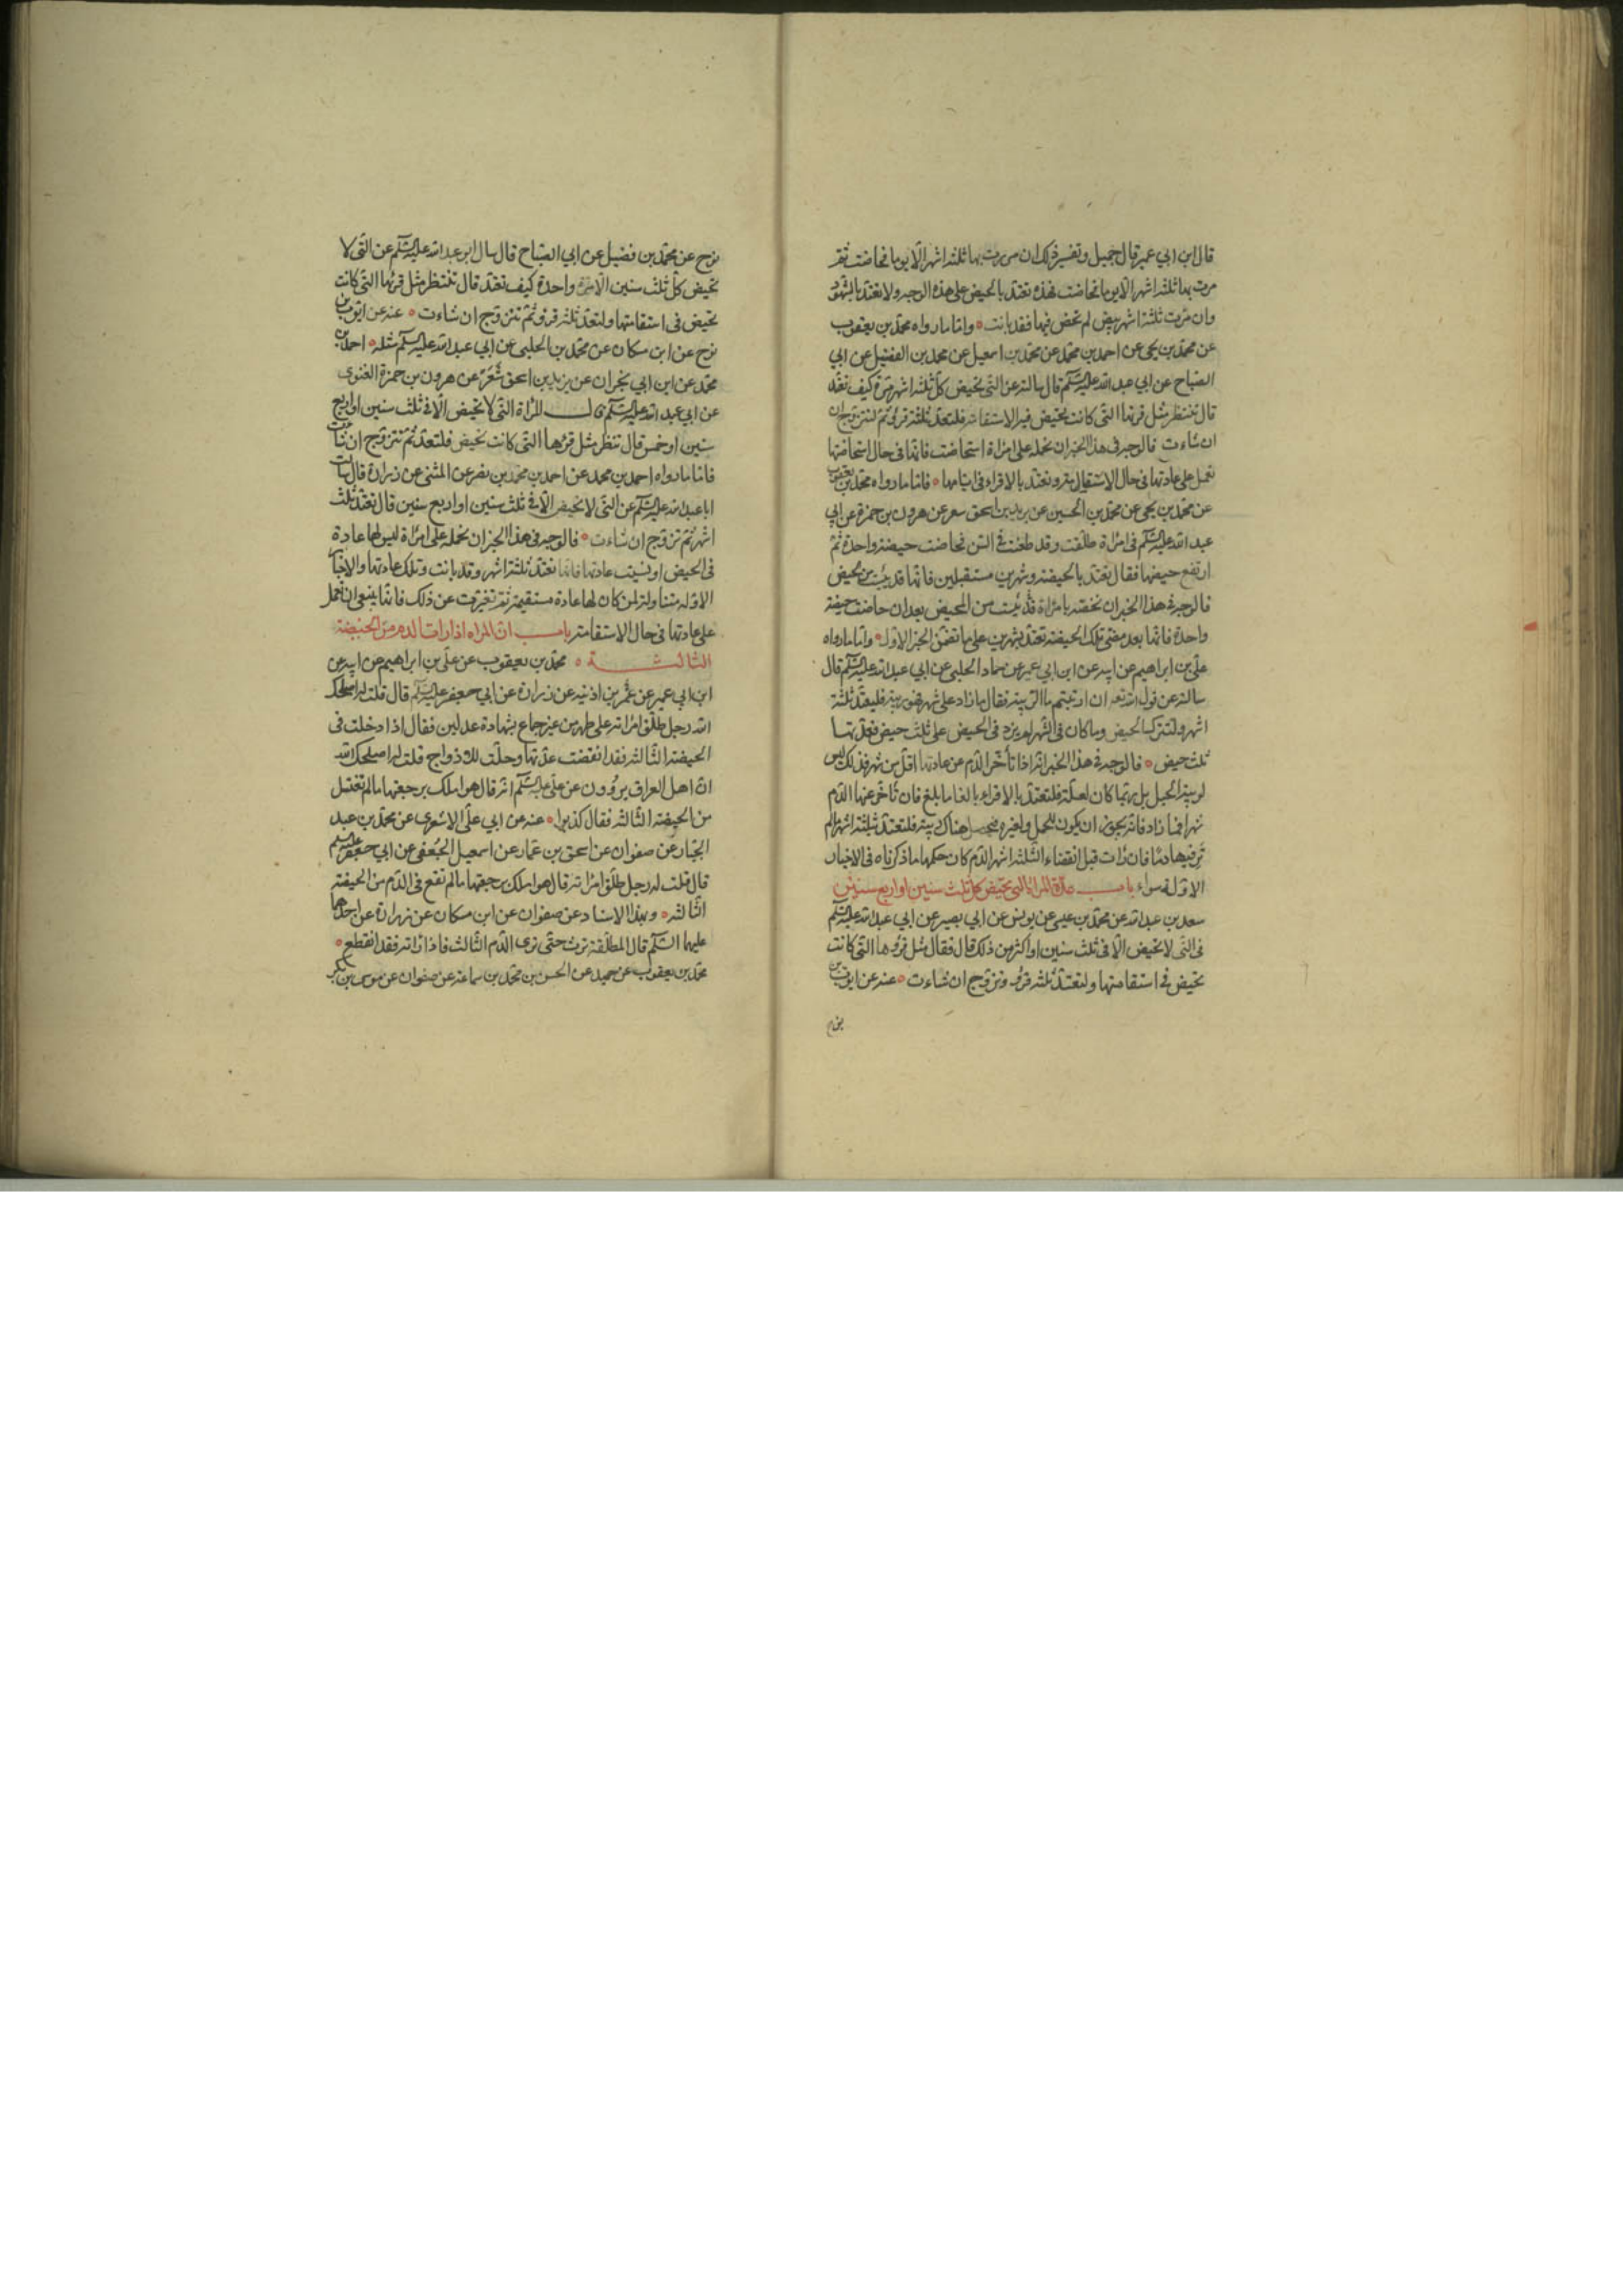 قال ابن ابي عمير قال جميل وتفسير ذلك ان مرت بها ثلثة اشهر الا يوما فحاضت ثم
مرت بها ثلثة اشهر الا يوما فحاضت فهذه تعتد بالحيض على هذه الوجه ولا تعتد بالشهور
وان مرت ثلثة اشهر بيض لم تحض فيها فقد بانت ٥ واما ما رواه محمد بن يعقوب
عن محمد بن يحيى عن احمد بن محمد عن محمد بن اسمعيل عن محمد بن الفضيل عن ابي
الصباح عن ابي عبد الله عليه السلم قال سالته عن التى تحيض كل ثلثة اشهر مرة كيف تعتد
قال تنتظر مثل قرئها التى كانت تحيض فيه الاستقامة فلتعتد ثلثة قروء ثم لتتزوج ان
ان شاءت فالوجه فى هذا الخبر ان نحمله على امراة استحاضت فانها فى حال استحاضتها
تعمل على عادتها فى حال الاستقامة وتعتد بالاقراء فى ايامها ٥ فاما ما رواه محمد بن يعقوب
عن محمد بن يحيى عن محمد بن الحسين عن يزيد بن اسحق سعر عن هرون بن حمزة عن ابي
عبد الله عليه السلم فى امراة طلقت وقد طعنت فى السن فحاضت حيضة واحدة ثم
ارتفع حيضها فقال تعتد بالحيضة وشهرين مستقبلين فانها قد يئست من المحيض
فالوجه فى هذا الخبر ان نخصه بامراة قد يئست من المحيض بعد ان حاضت حيضة
واحدة فانها بعد مضى تلك الحيضة تعتد بشهرين على ما تضمن الخبر الاول ٥ واما ما رواه
على بن ابراهيم عن ابيه عن ابن ابي عمير عن حماد الحلبى عن ابي عبد الله عليه السلم قال
سالته عن قول الله تعه ان ارتبتم ما الريبة فقال ما زاد على شهر فهو ريبة فليعتد ثلثة
اشهر ولتترك الحيض وما كان فى الشهر لم يزد فى الحيض على ثلث حيض فعدتها
ثلث حيض ٥ فالوجه فى هذا الخبر انه اذا تأخر الدم عن عادتها اقل من شهر فذلك ليس
لريبة الحبل بل ربما كان لعلة فلتعتد بالاقراء بالغا ما بلغ فان تأخر عنها الدم
شهرا فما زاد فانه يجوز ان يكون للحمل ولغيره فيحصل هناك ريبة فلتعتد ثلثة اشهر ما لم
تر فيها دما فان رات قبل انقضاء الثلثة اشهر الدم كان حكمها ما ذكرناه فى الاخبار
الاولة سواء باب عدة المراة التى تحيض كل ثلث سنين او اربع سنين
سعد بن عبد الله عن محمد بن عيسى عن يونس عن ابي بصير عن ابي عبد الله عليه السلم
فى التى لا تحيض الا فى ثلث سنين او اكثر من ذلك قال فقال مثل قروءها التى كانت
تحيض فى استقامتها ولتعتد ثلثة قروء وتزوج ان شاءت ٥ عنه عن ايوب بن
نوح عن محمد بن فضيل عن ابي الصباح قال سال ابو عبد الله عليه السلم عن التى لا
تحيض كل ثلث سنين الا مرة واحدة كيف تعتد قال تنتظر مثل قرئها التى كانت
تحيض فى استقامتها ولتعتد ثلثة قروء ثم تتزوج ان شاءت ٥ عنه عن ايوب بن
نوح عن ابن مسكان عن محمد بن الحلبى عن ابي عبد الله عليه السلم مثله ٥ احمد بن
محمد عن ابن ابي نجران عن يزيد بن اسحق شعر عن هرون بن حمزة الغنوى
عن ابي عبد الله عليه السلم قال المراة التى لا تحيض الا فى ثلث سنين او اربع
سنين او خمس قال تنظر مثل قرءها التى كانت تحيض فلتعتد ثم تتزوج ان شاءت
فاما ما رواه احمد بن محمد عن احمد بن محمد بن نصر عن المثنى عن زرارة قال سالت
ابا عبد الله عليه السلم عن التى لا تحيض الا فى ثلث سنين او اربع سنين قال تعتد ثلث
اشهر ثم تزوج ان شاءت ٥ فالوجه فى هذا الخبر ان نحمله على امراة ليس لها عادة
فى الحيض او نسيت عادتها فانها تعتد ثلثة اشهر وقد بانت وتلك عادتها والاخبار
الاولة متناولة لمن كان لها عادة مستقيمة ثم تغيرت عن ذلك فانها ينبغى ان تعمل
على عادتها فى حال الاستقامة باب ان المراه اذا رات الدم من الحيضة
الثالثة ٥ محمد بن يعقوب عن على بن ابراهيم عن ابيه عن
ابن ابي عمير عن عمر بن اذنيه عن زرارة عن ابي جعفر عليه السلم قال قلت له اصلحك
الله رجل طلق امراته على طهر من غير جماع بشهادة عدلين فقال اذا دخلت فى
الحيضة الثالثة فقد انقضت عدتها وحلت للازواج قلت له اصلحك الله
ان اهل العراق يروون عن على عليه السلم انه قال هو املك برجعتها ما لم تغتسل
من الحيضة الثالثة فقال كذبوا ٥ عنه عن ابي على الاشعرى عن محمد بن عبد
الجبار عن صفوان عن اسحق بن عمار عن اسمعيل الجعفى عن ابي جعفر عليه السلم
قال قلت له رجل طلق امراته قال هو املك برجعتها ما لم تقع فى الدم من الحيضة
الثالثه ٥ وبهذا الاسناد عن صفوان عن ابن مسكان عن زرارة عن احدهما
عليهما السلم قال المطلقة ترث حتى ترى الدم الثالث فاذا راته فقد انقطع ٥
محمد بن يعقوب عن حميد عن الحسن بن محمد بن سماعة عن صفوان عن موسى بن بكر